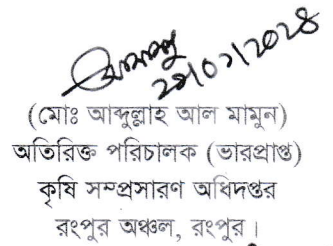 ২৯/০১/২০২৪
(মোঃ আব্দুল্লাহ আল মামুন)
অতিরিক্ত পরিচালক (ভারপ্রাপ্ত)
কৃষি সম্প্রসারণ অধিদপ্তর
রংপুর অঞ্চল, রংপুর।